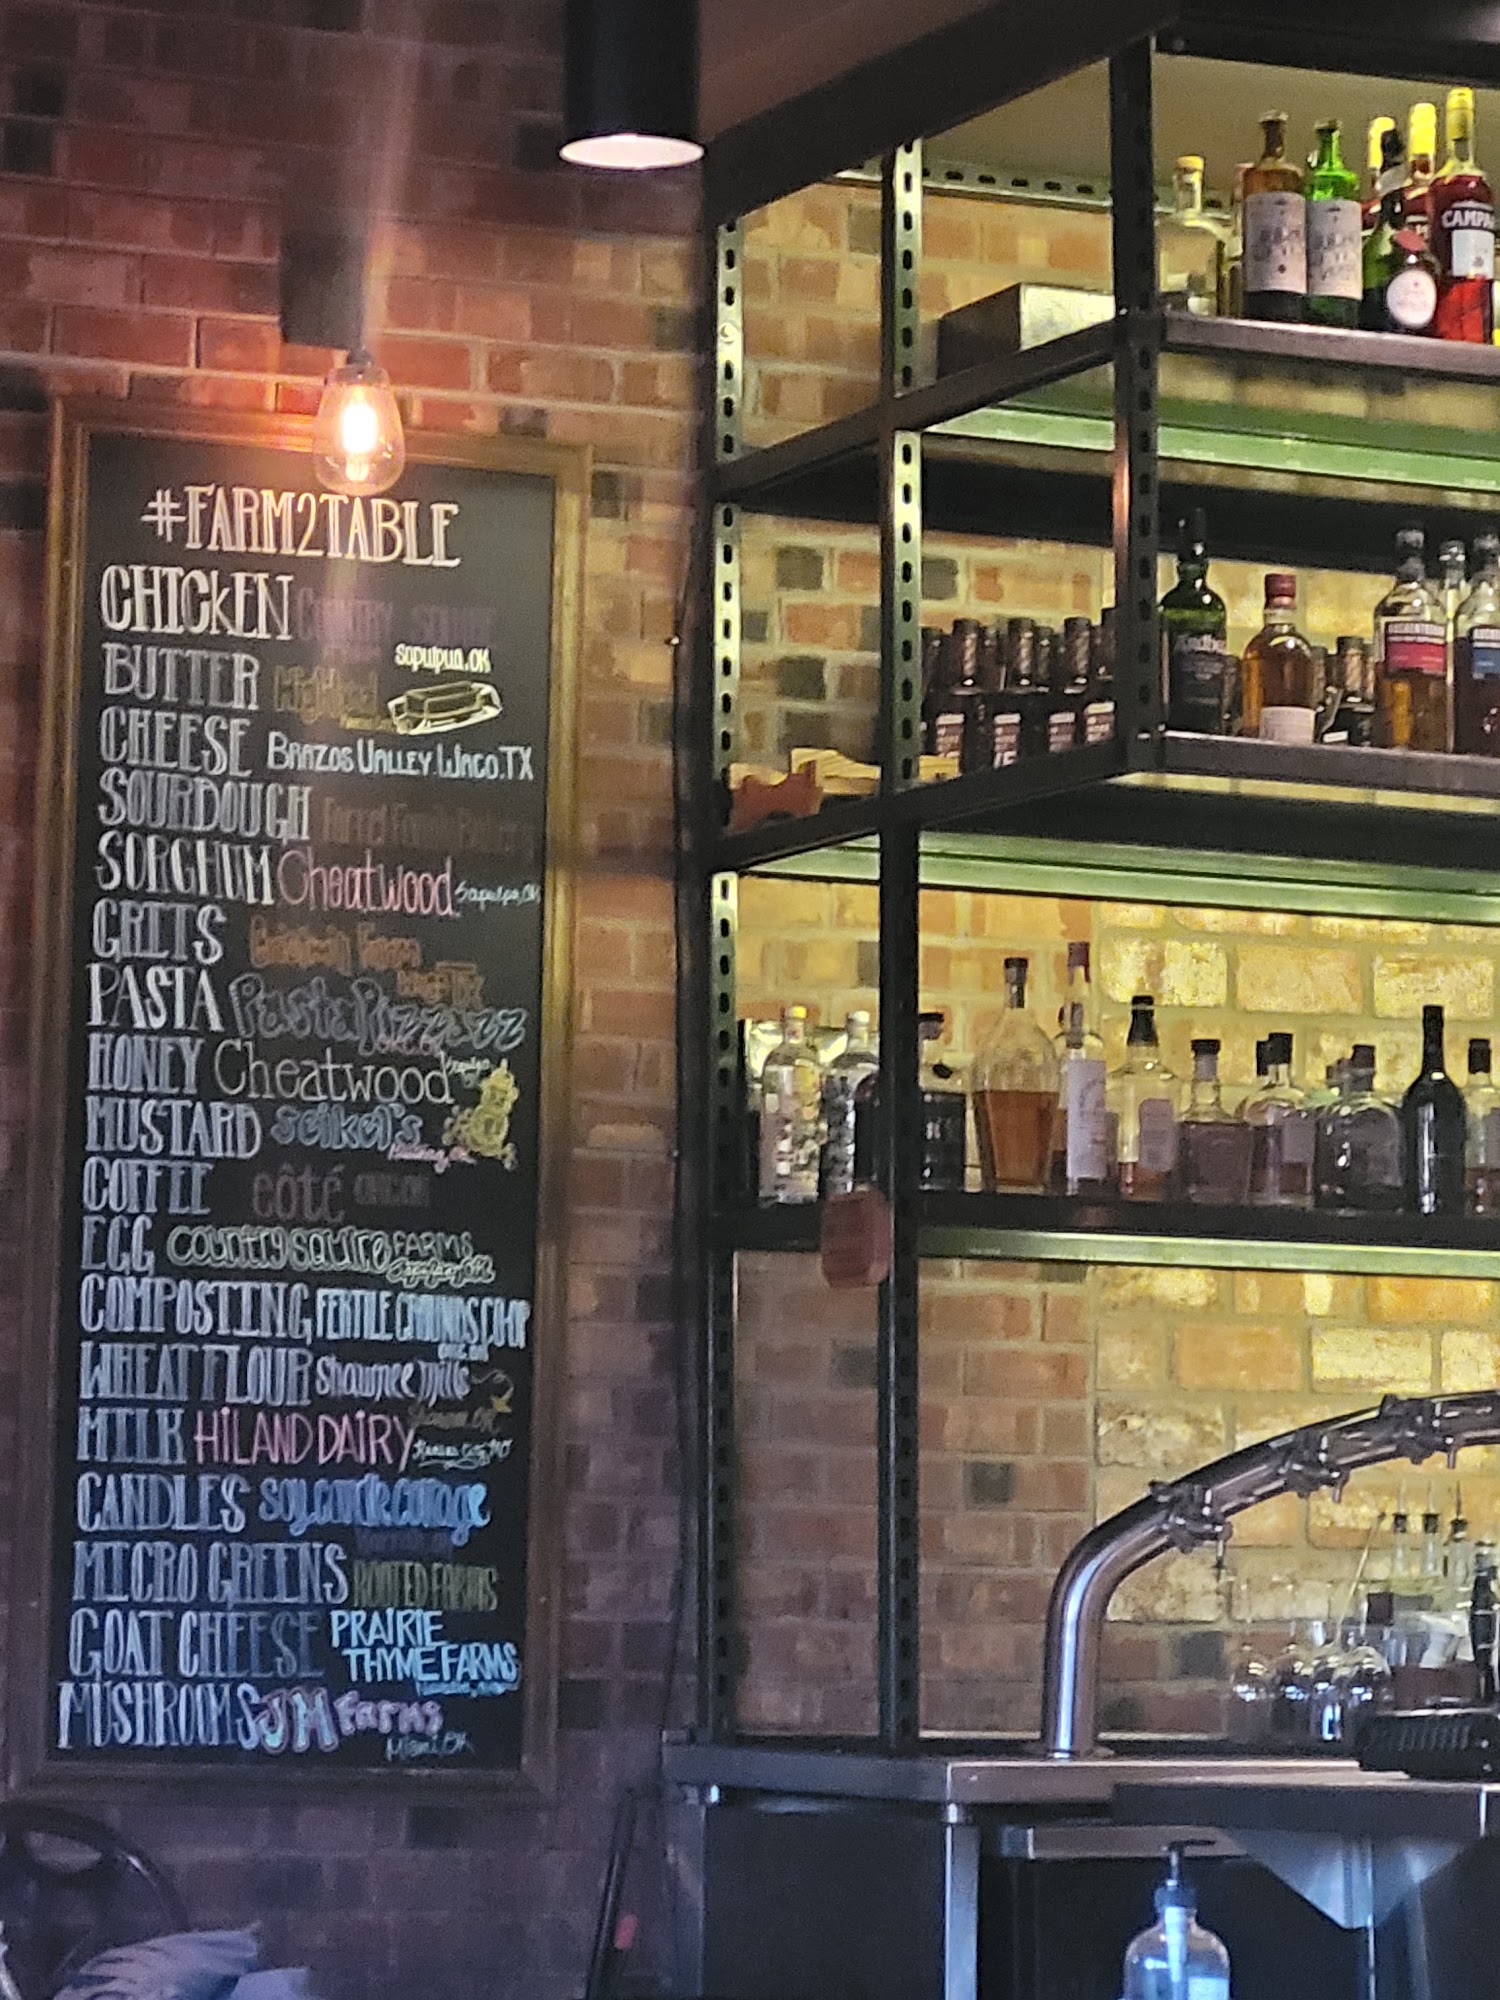 #FARM2TABLE
CHICKEN COUNTRY SQUIRE
Sapulpa, OK
BUTTER Highland
CHEESE BRAZOS VALLEY. WACO, TX
SOURDOUGH Farrel Family Bakery
SORGHUM Cheatwood Sapulpa, OK
GRITS
PASTA Pasta Pizzazz
HONEY Cheatwood
MUSTARD Seikel's
COFFEE côté
EGG country squire FARMS
COMPOSTING FERTILE GROUNDS CO-OP
WHEAT FLOUR Shawnee Mills
MILK HILAND DAIRY Kansas City, MO
CANDLES Soy candle cottage
MICRO GREENS ROOTED FARMS
GOAT CHEESE PRAIRIE
THYME FARMS
MUSHROOMS JM Farms
Miami, OK
CAMPA